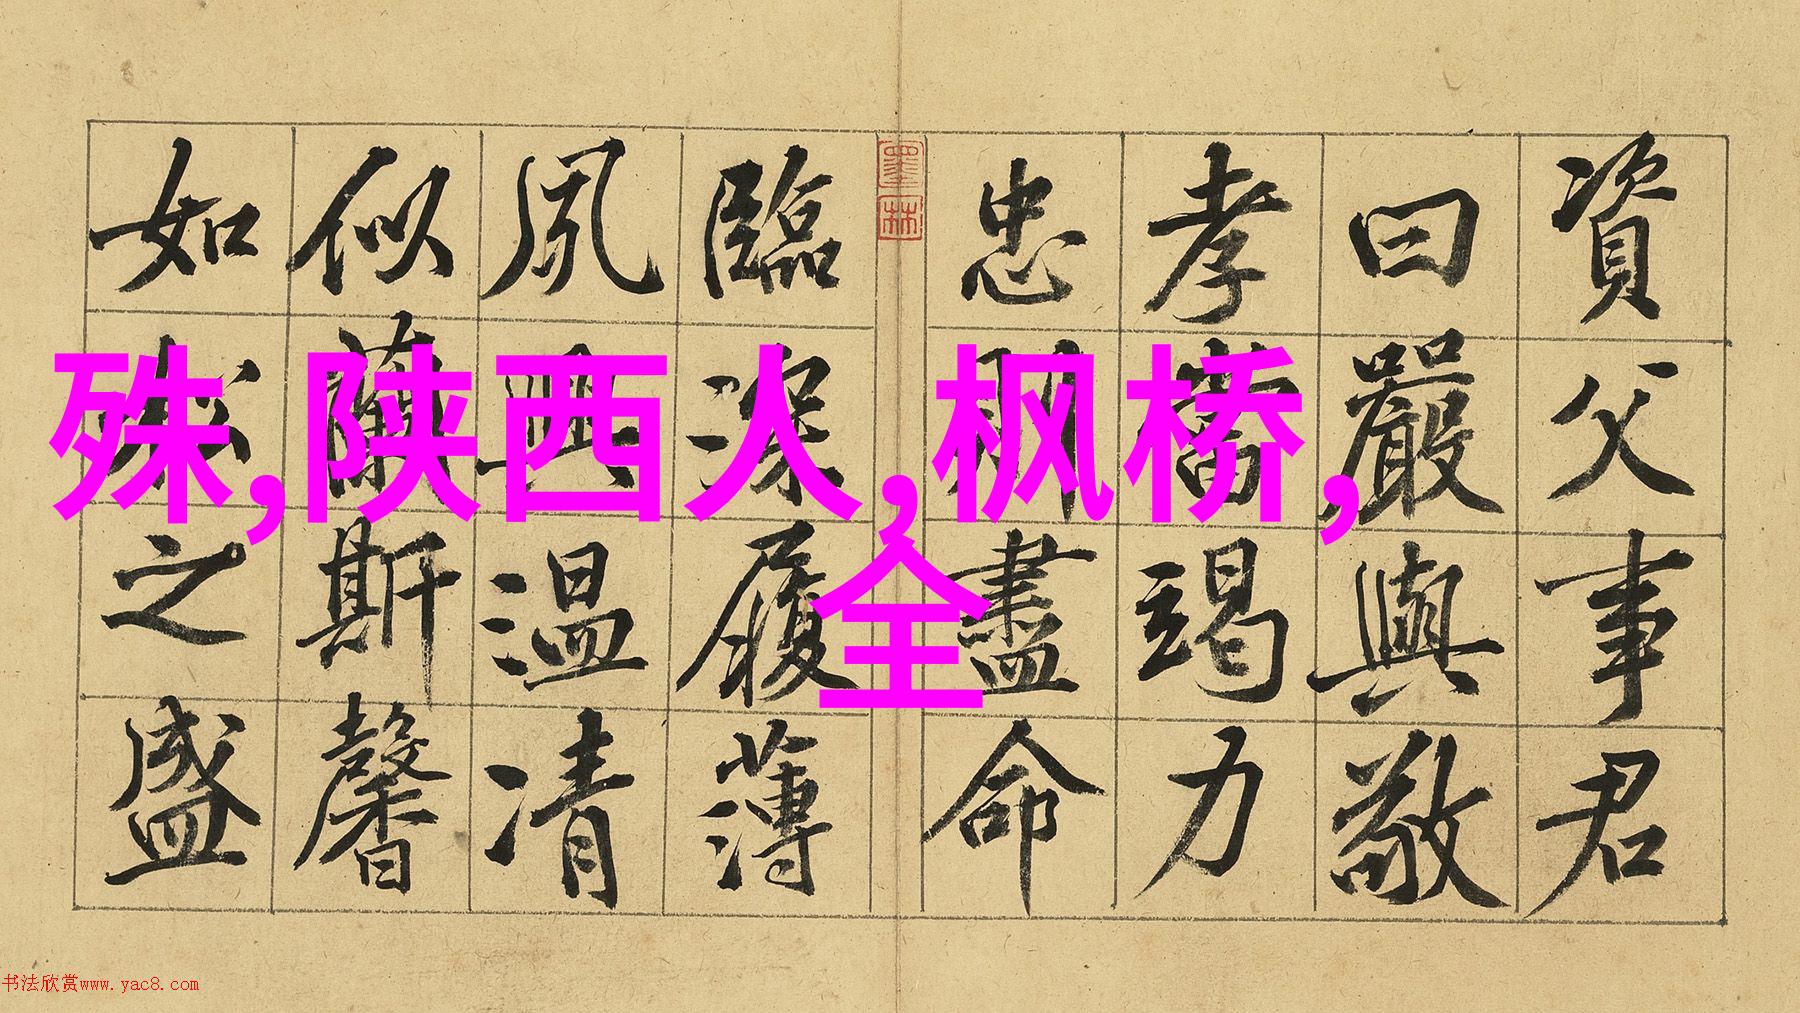 資父事君
曰嚴與敬
孝當竭力
忠則盡命
臨深履薄
夙興温凊
似蘭斯馨
如松之盛
墨林
殊,陕西人,枫桥,
全
书法欣赏www.yac8.com